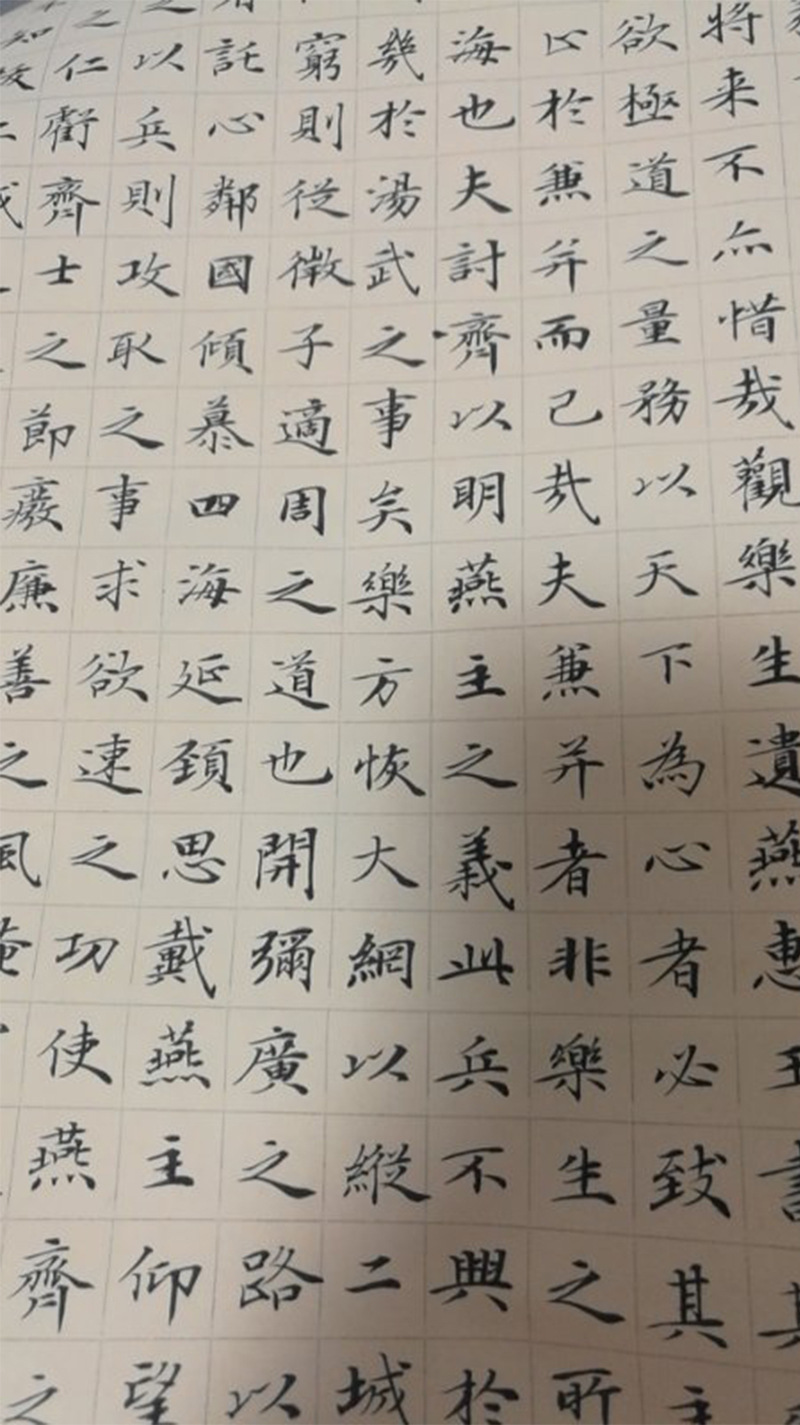 將来不亦惜哉觀樂生遺燕惠王書其
欲極道之量務以天下為心者必致其主
止於兼并而已哉夫兼并者非樂生之所
海也夫討齊以明燕主之義此兵不興於
幾於湯武之事矣樂方恢大綱以縱二城
窮則從徵子適周之道也開彌廣之路以
託心鄰國傾慕四海延頸思戴燕主仰望
之以兵則攻取之事求欲速之功使燕齊之
之仁衝齊士之節廢廉善之風掩
知